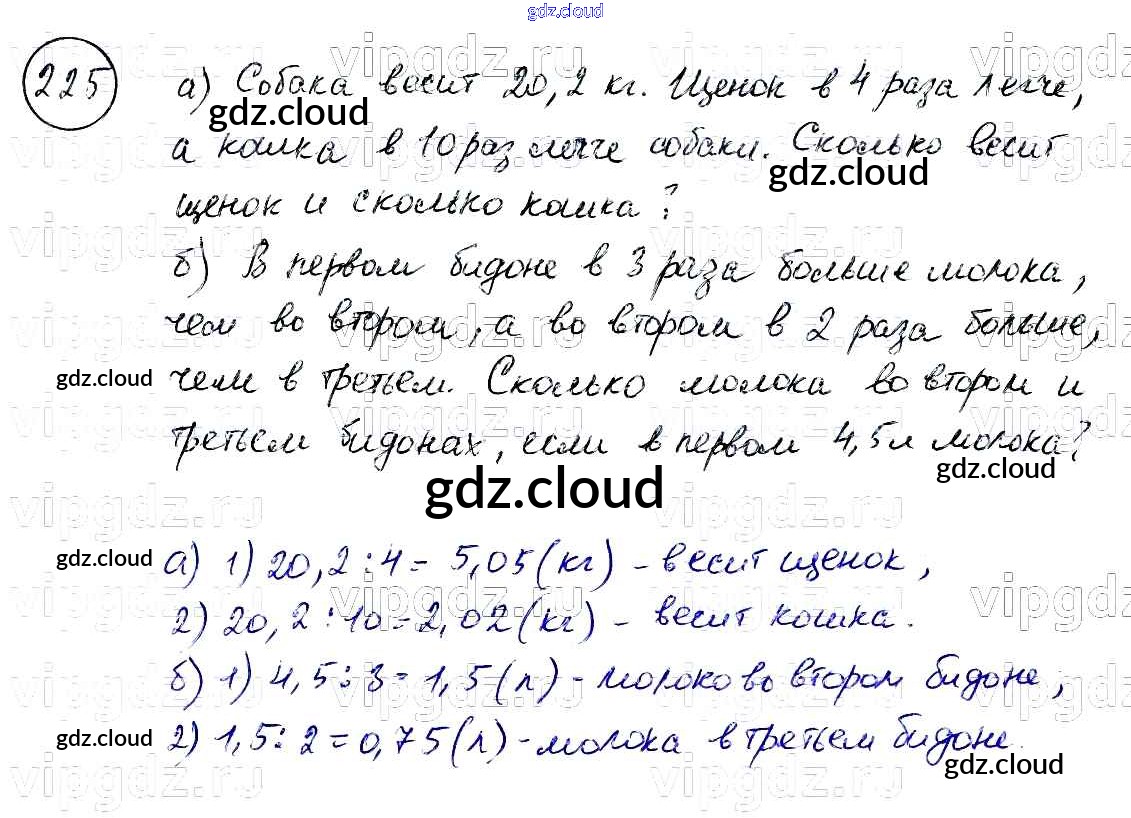 gdz.cloud
225
а) Собака весит 20,2 кг. Щенок в 4 раза легче,
gdz.cloud
а кошка в 10 раз легче собаки. Сколько весит
gdz.cloud
щенок и сколько кошка?
б) В первом бидоне в 3 раза больше молока,
чем во втором, а во втором в 2 раза больше,
gdz.cloud
чем в третьем. Сколько молока во втором и
gdz.cloud
третьем бидонах, если в первом 4,5 л молока?
gdz.cloud
gdz.cloud
gdz.cloud
а) 1) 20,2 : 4 = 5,05 (кг) - весит щенок,
2) 20,2 : 10 = 2,02 (кг) - весит кошка.
б) 1) 4,5 : 3 = 1,5 (л) - молоко во втором бидоне,
gdz.cloud
2) 1,5 : 2 = 0,75 (л) - молока в третьем бидоне.
gdz.cloud
vipgdz.ru